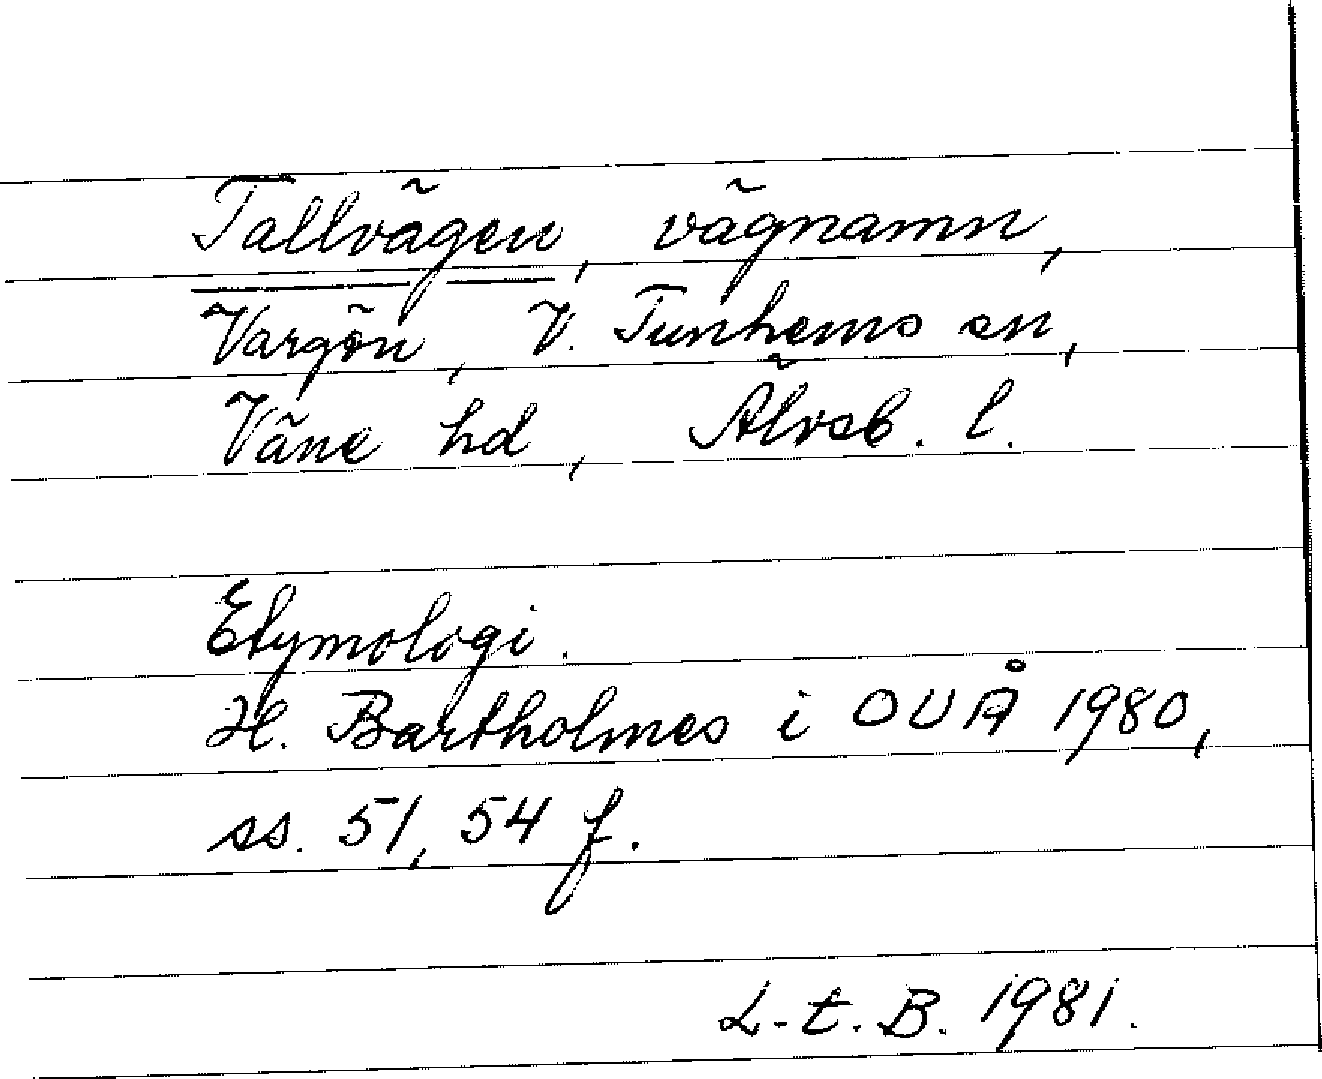 Tallvägen, vägnamn,
Vargön, V. Tunhems sn,
Väne hd, Älvsb. l.
Etymologi.
H. Bartholmes i OUÅ 1980,
ss. 51, 54 f.
L-t. B. 1981.